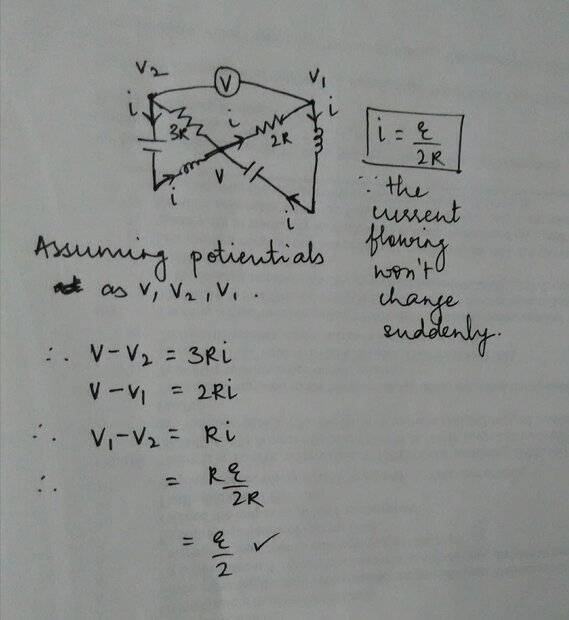 V2 V V1
i i i
3R 2R
V
i i
i = ε/2R
∵ the
current
flowing
won't
change
suddenly.
Assuming potientials
as V, V2, V1.
∴ V-V2 = 3Ri
V-V1 = 2Ri
∴ V1-V2 = Ri
∴ = R ε/2R
= ε/2 ✓